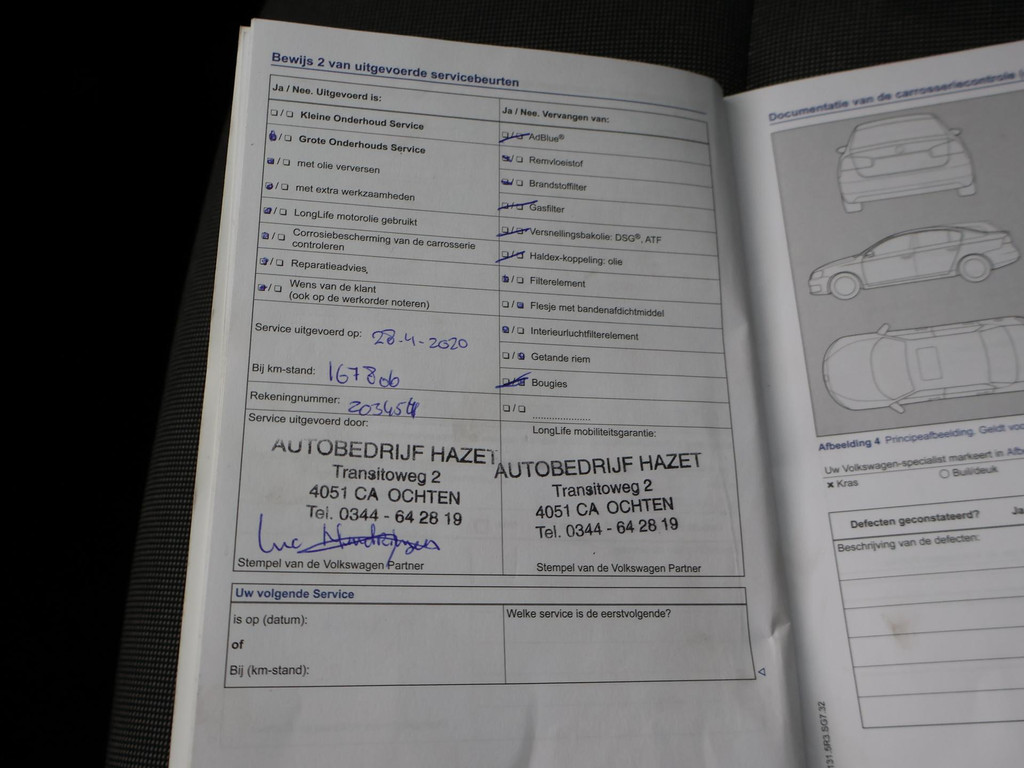 Bewijs 2 van uitgevoerde servicebeurten
Ja / Nee. Uitgevoerd is:
/ Kleine Onderhoud Service
/ Grote Onderhouds Service
/ met olie verversen
/ met extra werkzaamheden
/ LongLife motorolie gebruikt
/ Corrosiebescherming van de carrosserie
controleren
/ Reparatieadvies,
/ Wens van de klant
(ook op de werkorder noteren)
Service uitgevoerd op: 28-4-2020
Bij km-stand: 167806
Rekeningnummer:
Service uitgevoerd door:
AUTOBEDRIJF HAZET
Transitoweg 2
4051 CA OCHTEN
Tel. 0344 - 64 28 19
Luc
Stempel van de Volkswagen Partner
Ja / Nee. Vervangen van:
/ AdBlue®
/ Remvloeistof
/ Brandstoffilter
/ Gasfilter
/ Versnellingsbakolie: DSG®, ATF
/ Haldex-koppeling: olie
/ Filterelement
/ Flesje met bandenafdichtmiddel
/ Interieurluchtfilterelement
/ Getande riem
/ Bougies
/ ....................
LongLife mobiliteitsgarantie:
AUTOBEDRIJF HAZET
Transitoweg 2
4051 CA OCHTEN
Tel. 0344 - 64 28 19
Stempel van de Volkswagen Partner
Uw volgende Service
is op (datum):
of
Bij (km-stand):
Welke service is de eerstvolgende?
Documentatie van de carrosseriecontrole
Afbeelding 4 Principeafbeelding. Geldt
Uw Volkswagen-specialist markeert in
× Kras
○ Buil/deuk
Defecten geconstateerd? Ja
Beschrijving van de defecten:
131.5R3.SG7.32